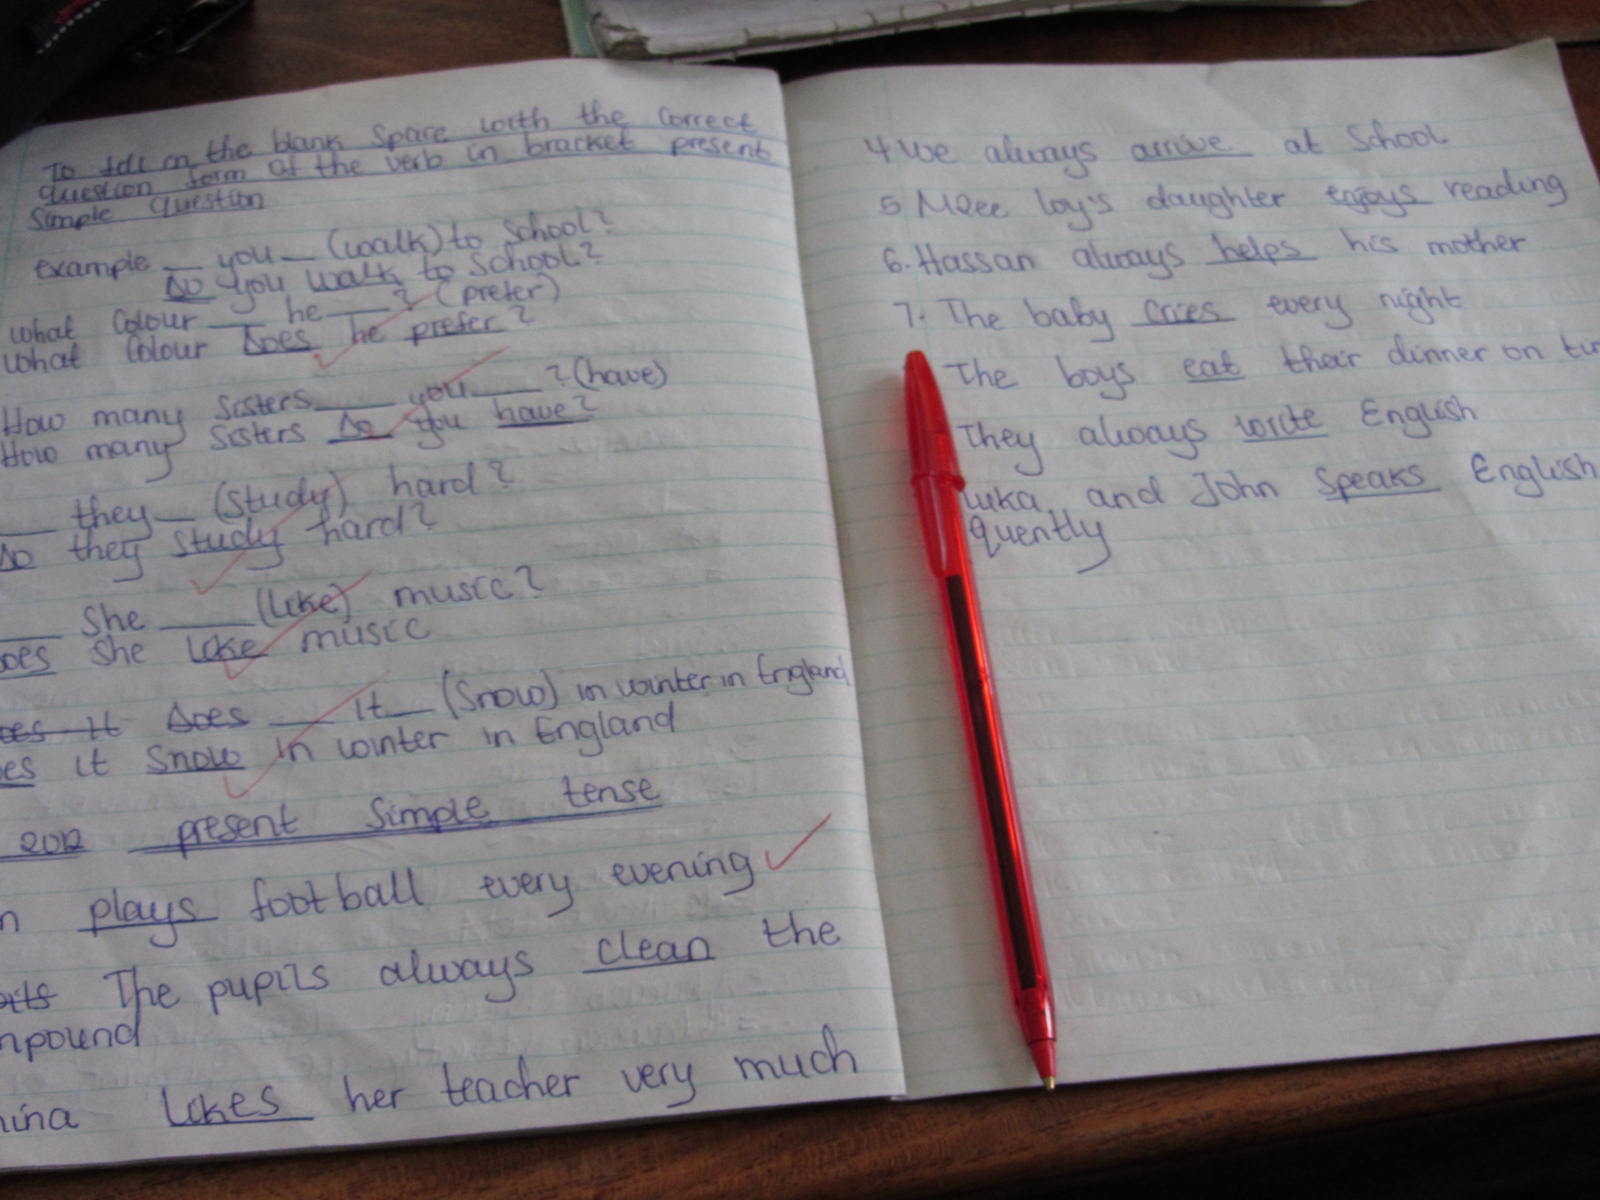 To fill in the blank space with the correct
question form of the verb in bracket present
simple question
example __ you __ (walk) to school?
Do you walk to school?
what colour ___ he ___? (prefer)
what colour Does he prefer?
How many sisters ___ you ___? (have)
How many sisters Do you have?
___ they __ (study) hard?
Do they study hard?
___ she ___ (like) music?
oes she like music
oes it Does ___ it __ (snow) in winter in England
es it snow in winter in England
2012 present simple tense
n plays football every evening
The pupils always clean the
mpound
mina likes her teacher very much
4 We always arrive at school
5 loy's daughter enjoys reading
6. Hassan always helps his mother
7. The baby cries every night
The boys eat their dinner on tim
They always write English
luka and John speaks English
quently